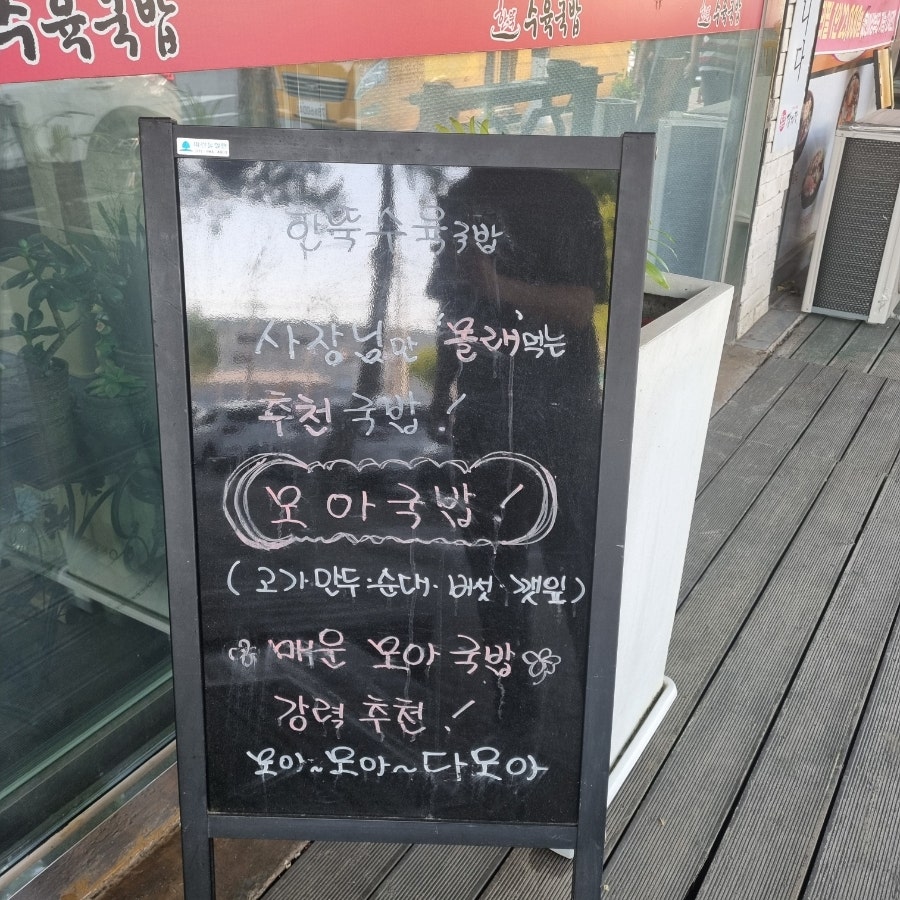 수육국밥
한뚝 수육국밥
수육국밥
한뚝수육국밥
사장님만 '몰래' 먹는
추천 국밥!
모아국밥!
(고기·만두·순대·버섯·깻잎)
매운 모아국밥
강력 추천!
모아~모아~다모아
니다